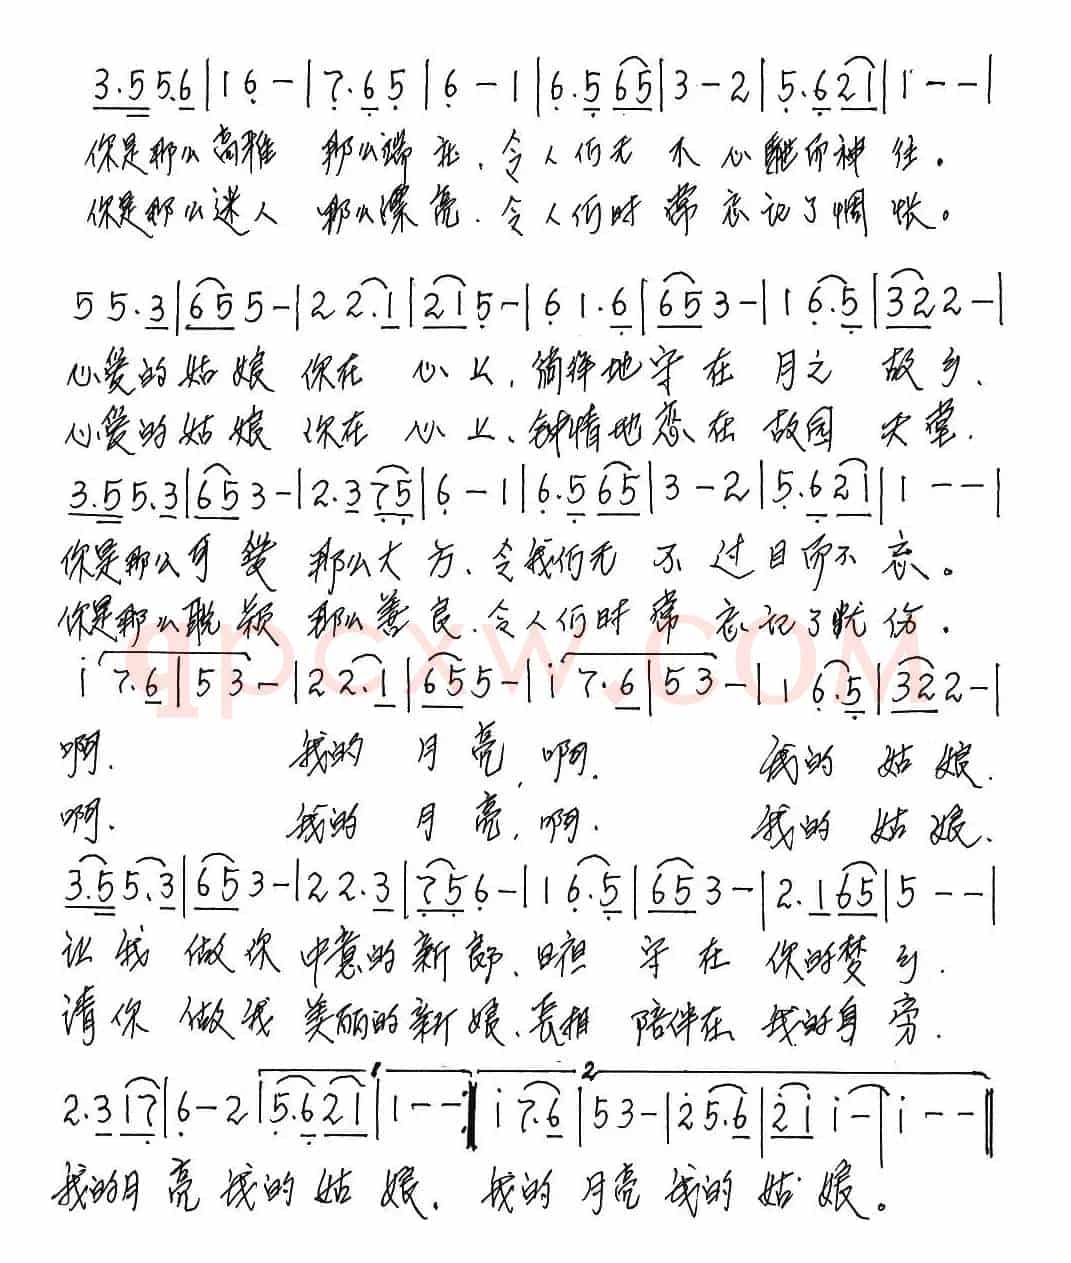 3.5 5.6 | 1 6 - | 7.6 5 | 6 - 1 | 6.5 65 | 3 - 2 | 5.6 21 | 1 - - |
你是那么高雅 那么端庄、令人们无不心驰而神往。
你是那么迷人 那么漂亮、令人们时常忘记了惆怅。
5 5.3 | 65 5 - | 2 2.1 | 21 5 - | 6 1.6 | 65 3 - | 1 6.5 | 32 2 - |
心爱的姑娘 你在 心上、徜徉地守在 月之 故乡、
心爱的姑娘 你在 心上、钟情地恋在 故园 天堂.
3.5 5.3 | 65 3 - | 2.3 75 | 6 - 1 | 6.5 65 | 3 - 2 | 5.6 21 | 1 - - |
你是那么可爱 那么大方、令我们无 不过目而不忘。
你是那么聪颖 那么善良、令人们时常 忘记了忧伤.
qpcxw.com
i 7.6 | 5 3 - | 2 2.1 | 65 5 - | i 7.6 | 5 3 - | 1 6.5 | 32 2 - |
啊. 我的 月亮, 啊. 我的 姑娘.
啊. 我的 月亮, 啊. 我的 姑娘.
3.5 5.3 | 65 3 - | 2 2.3 | 75 6 - | 1 6.5 | 65 3 - | 2.1 65 | 5 - - |
让我 做你 中意的新郎、日夜 守在 你的梦乡.
请你 做我 美丽的新娘、长相 陪伴在 我的身旁.
1 2
2.3 17 | 6 - 2 | 5.6 21 | 1 - - :| i 7.6 | 5 3 - | 2 5.6 | 21 i - | i - - ‖
我的月亮 我的姑娘. 我的 月亮 我的 姑娘。